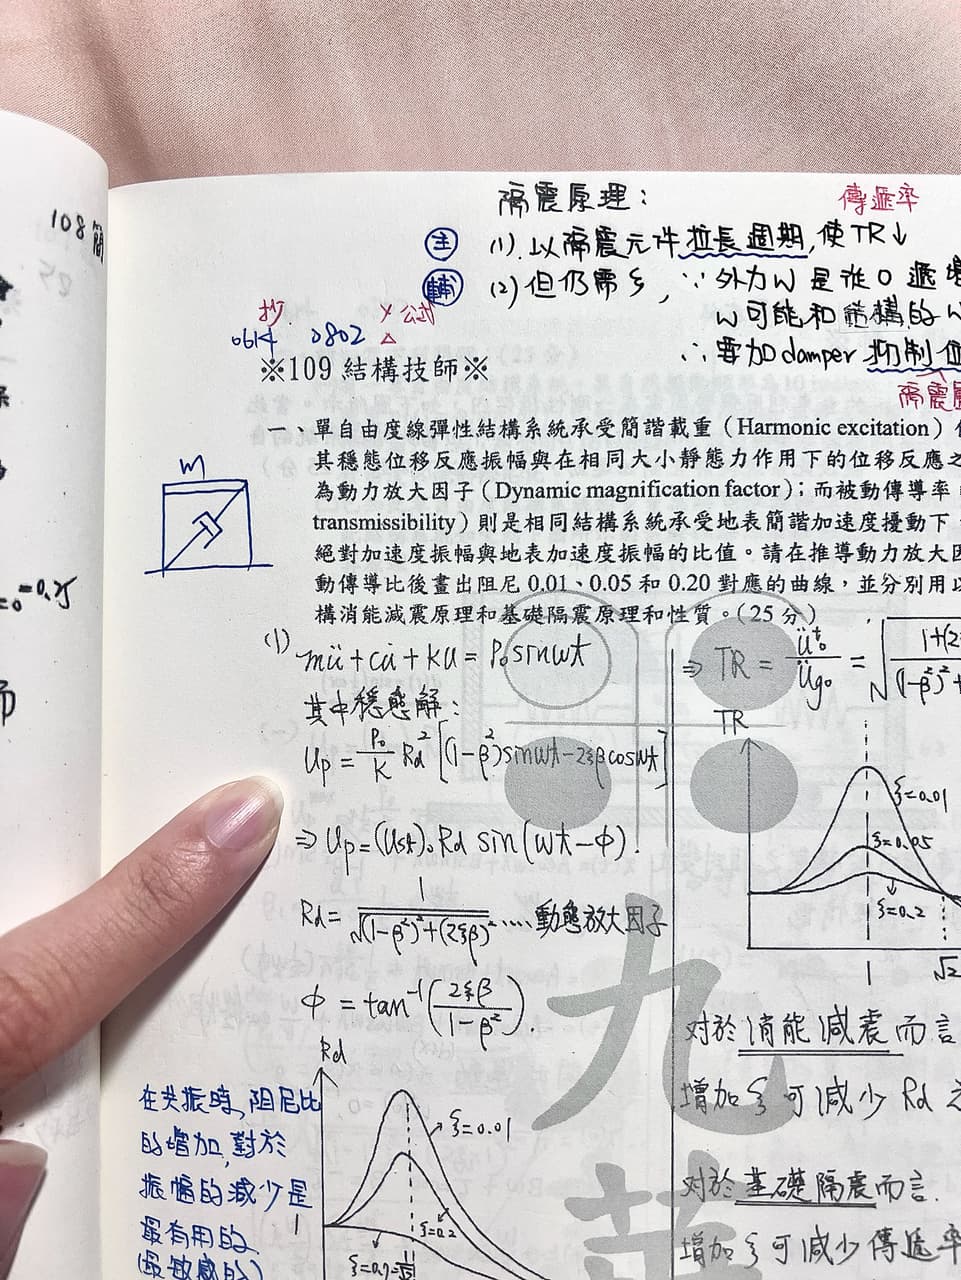 108 簡
=0.25
隔震原理：
傳遞率
主 (1). 以隔震元件拉長週期, 使TR↓
輔 (2) 但仍需ξ, ∵ 外力W是從0遞增
W可能和結構的W
∴要加damper 抑制位
隔震層
抄 公式
0614 0802 △
※109 結構技師※
一、單自由度線彈性結構系統承受簡諧載重（Harmonic excitation）
其穩態位移反應振幅與在相同大小靜態力作用下的位移反應之
為動力放大因子（Dynamic magnification factor）；而被動傳導率
transmissibility）則是相同結構系統承受地表簡諧加速度擾動下，
絕對加速度振幅與地表加速度振幅的比值。請在推導動力放大因
動傳導比後畫出阻尼 0.01、0.05 和 0.20 對應的曲線，並分別用以
構消能減震原理和基礎隔震原理和性質。（25 分）
m
(1) mü + cu̇ + ku = P₀sinωt
其中穩態解：
Up = P₀/K Rd² [(1-β²)sinωt - 2ξβcosωt]
⇒ Up = (Ust)₀ Rd sin(ωt-Φ).
Rd = 1/√((1-β²)²+(2ξβ)²) ‥‥動態放大因子
Φ = tan⁻¹(2ξβ/(1-β²)).
Rd
ξ=0.01
ξ=0.2
1
在共振時, 阻尼比
的增加, 對於
振幅的減少是
最有用的.
(最敏感的)
⇒ TR = ü₀ᵗ/üg₀ =
TR
ξ=0.01
ξ=0.05
ξ=0.2
1 √2
对於消能減震而言
增加ξ可減少Rd
对於基礎隔震而言.
增加ξ可減少傳遞率
九
華